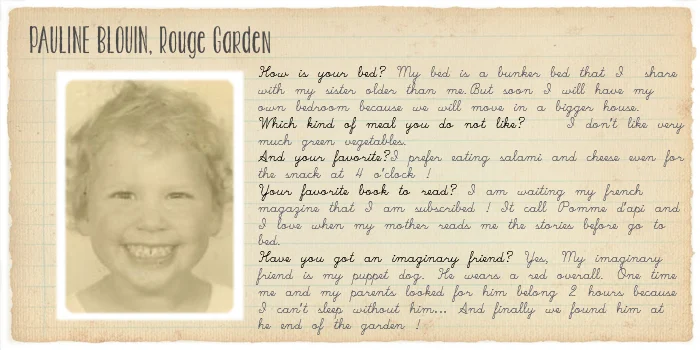 PAULINE BLOUIN, Rouge Garden
How is your bed? My bed is a bunker bed that I share
with my sister older than me.But soon I will have my
own bedroom because we will move in a bigger house.
Which kind of meal you do not like? I don't like very
much green vegetables.
And your favorite?I prefer eating salami and cheese even for
the snack at 4 o'clock !
Your favorite book to read? I am waiting my french
magazine that I am subscribed ! It call Pomme d'api and
I love when my mother reads me the stories before go to
bed.
Have you got an imaginary friend? Yes, My imaginary
friend is my puppet dog. He wears a red overall. One time
me and my parents looked for him belong 2 hours because
I can't sleep without him... And finally we found him at
he end of the garden !